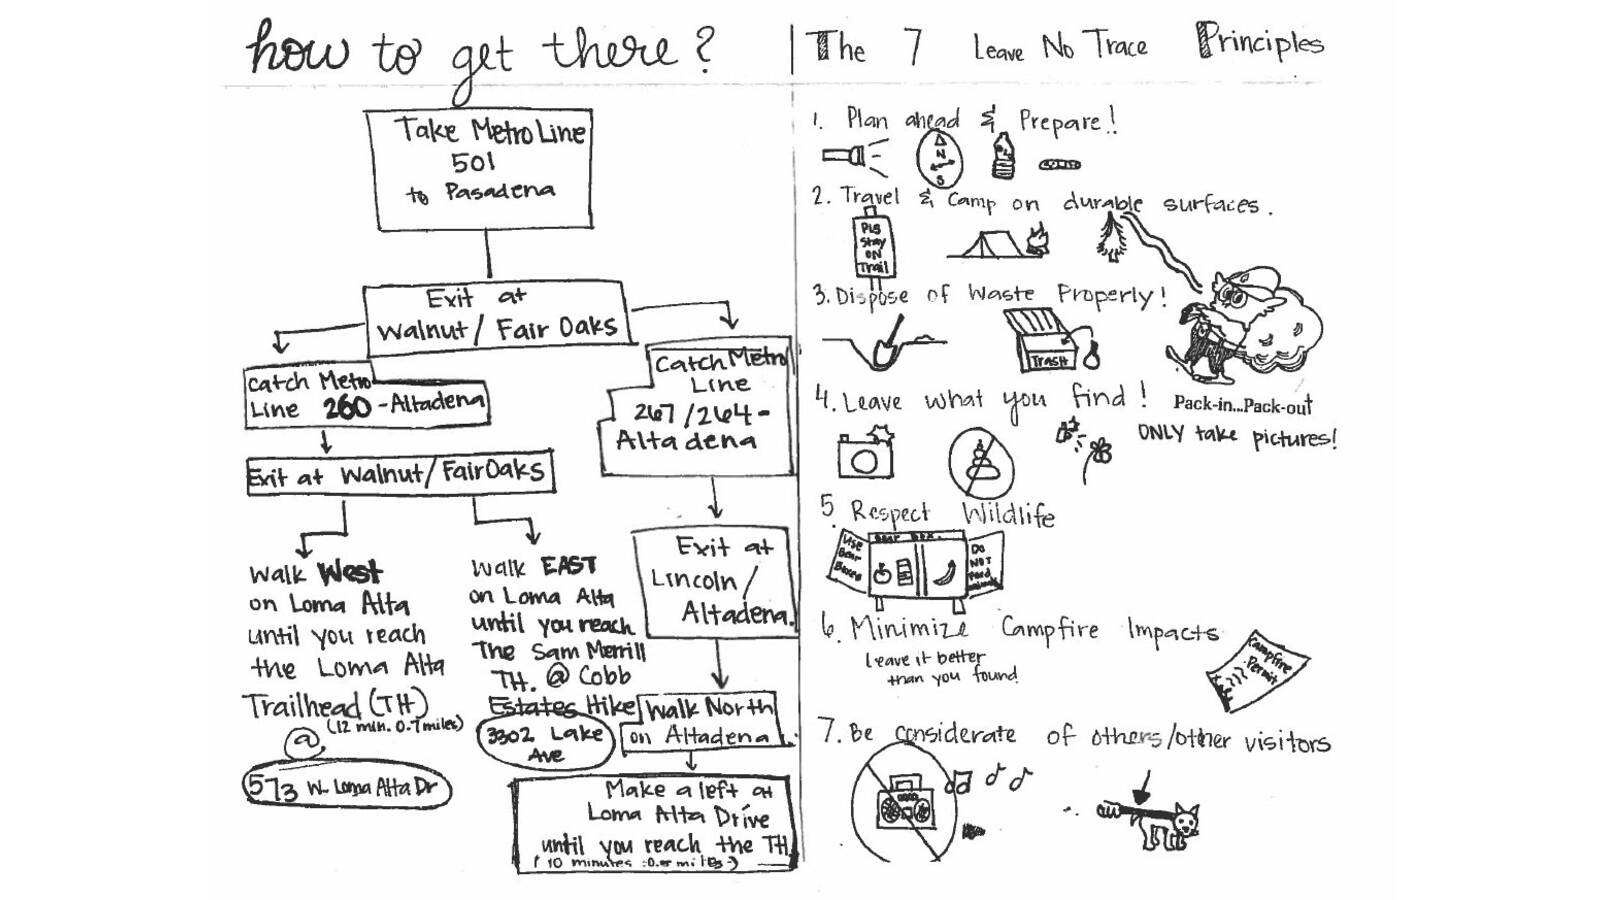 how to get there?
Take Metro Line
501
to Pasadena
Exit at
Walnut/ Fair Oaks
Catch Metro
Line 260 - Altadena
Exit at Walnut/ Fair Oaks
Walk West
on Loma Alta
until you reach
the Loma Alta
Trailhead (TH)
(12 min. 0.7 miles)
@
573 W. Loma Alta Dr
Walk EAST
on Loma Alta
until you reach
The Sam Merrill
TH. @ Cobb
Estates Hike
3302 Lake
Ave
Catch Metro
Line
267/264 -
Altadena
Exit at
Lincoln/
Altadena.
Walk North
on Altadena
Make a left at
Loma Alta Drive
until you reach the TH
(10 minutes
The 7 Leave No Trace Principles
1. Plan ahead & Prepare!
N
S
2. Travel & Camp on durable surfaces.
Pls
Stay
on
Trail
3. Dispose of Waste Properly!
TRASH
4. Leave what you find!
Pack-in...Pack-out
ONLY take pictures!
5 Respect Wildlife
Use
Bear
Boxes
Bear Box
Do
NOT
feed
animals
6. Minimize Campfire Impacts
leave it better
than you found
Campfire
Permit
7. Be considerate of others/other visitors